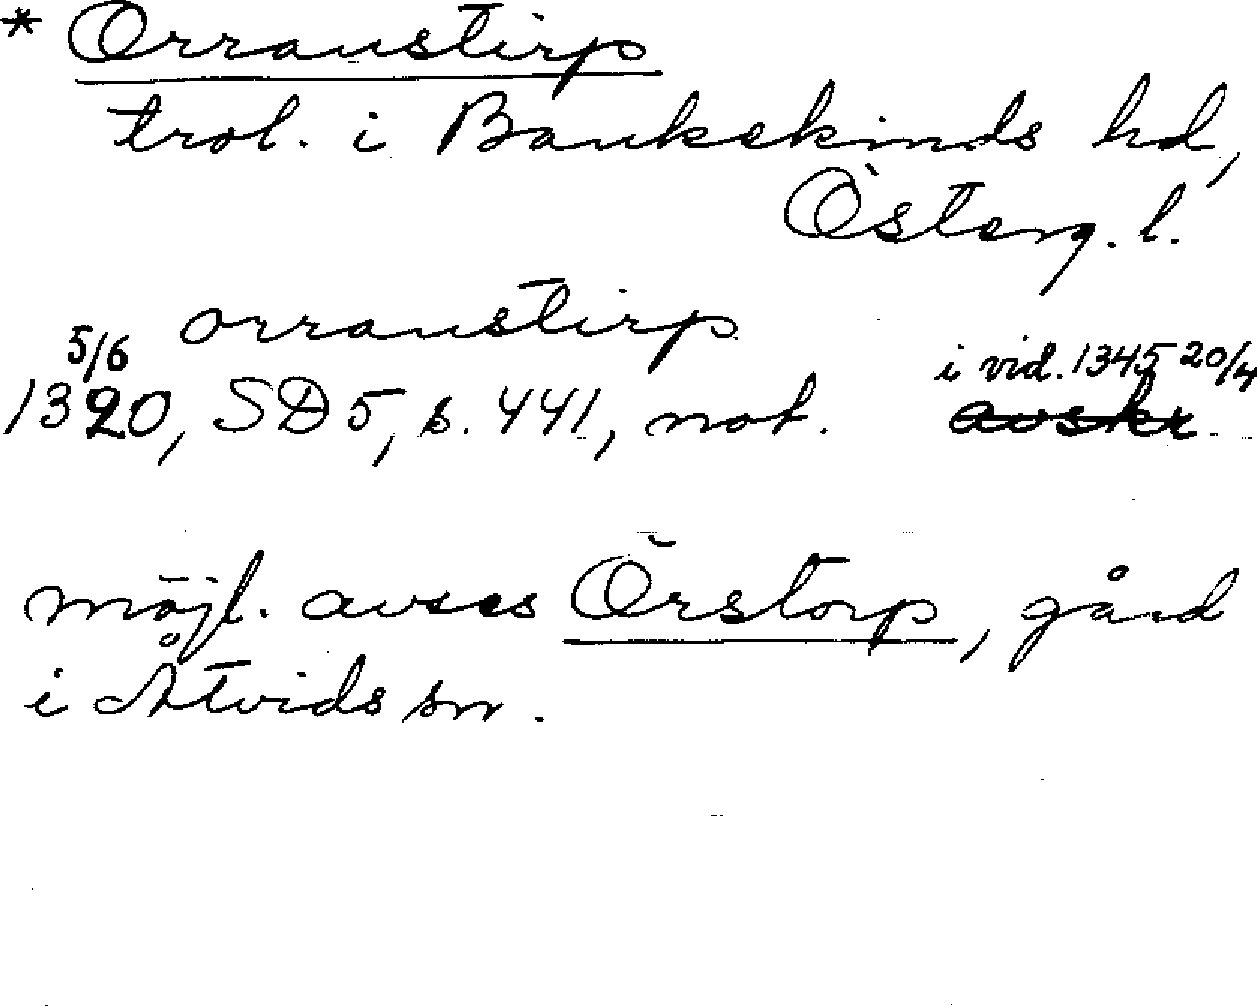 * Orraustirp
trol. i Bankekinds hd,
Österg. l.
orraustirp
5/6 i vid. 1345 20/4
1320, SD 5, s. 441, not. avskr.
möjl. avses Örstorp, gård
i Åtvids sn.